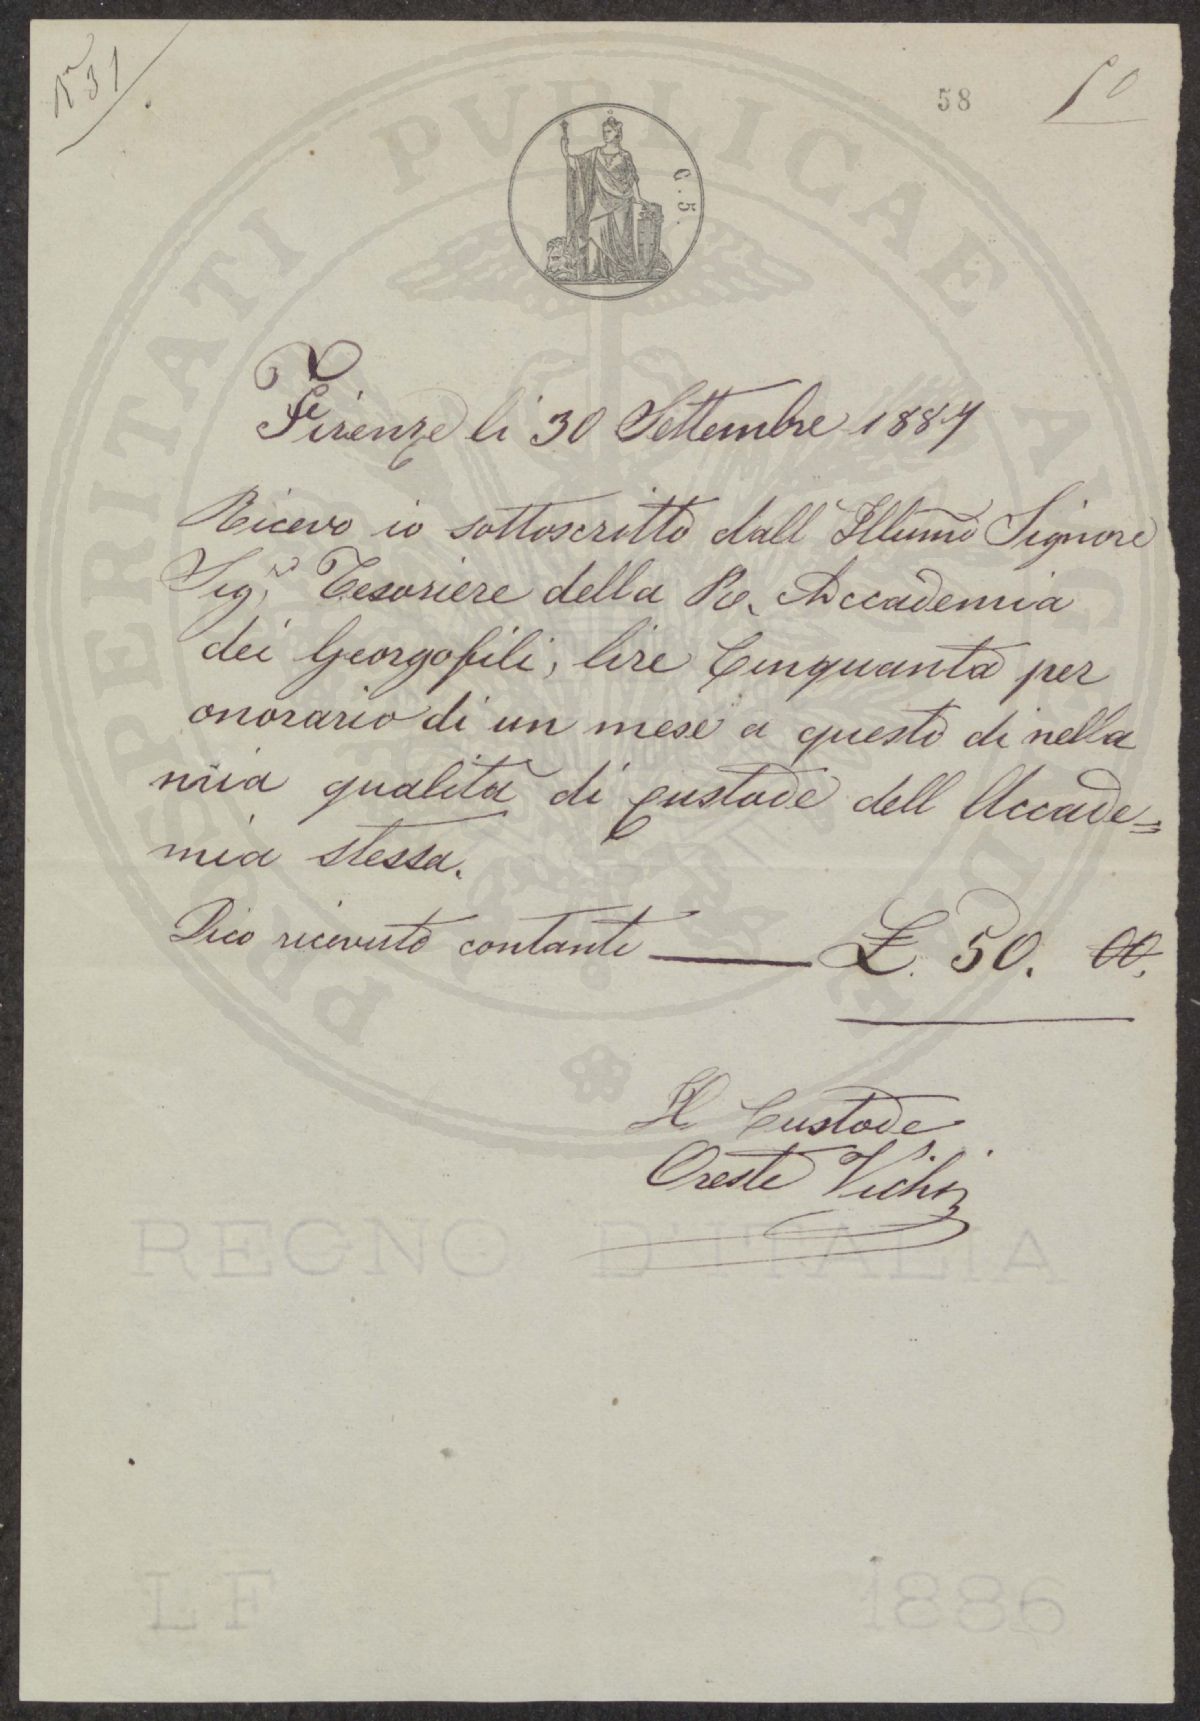 N° 31
58
50
C. 5.
Firenze li 30 Settembre 1887
Ricevo io sottoscritto dall' Illumo Signore
Sigr Tesoriere della R. Accademia
dei Georgofili, lire Cinquanta per
onorario di un mese a questo di nella
mia qualita di custode dell Accade=
mia stessa.
Dico ricevuto contanti — £. 50. 00.
Il Custode
Oreste Vichi
PROSPERITATI PVBLICAE AVGENDAE
REGNO D'ITALIA
LF 1886